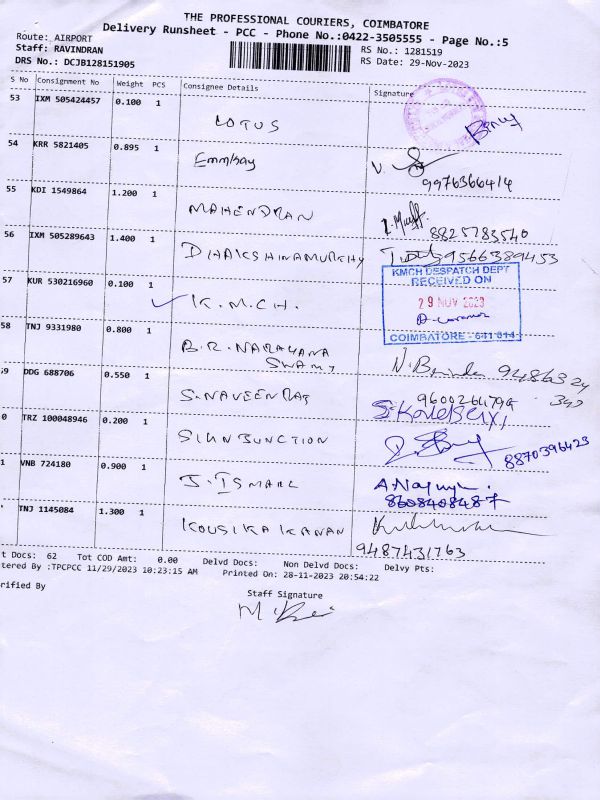 THE PROFESSIONAL COURIERS, COIMBATORE
Delivery Runsheet - PCC - Phone No.:0422-3505555 - Page No.:5
Route: AIRPORT
Staff: RAVINDRAN RS No.: 1281519
DRS No.: DCJB128151905 RS Date: 29-Nov-2023
S No Consignment No Weight PCS Consignee Details Signature
53 IXM 505424457 0.100 1
LOTUS
54 KRR 5821405 0.895 1
Emmkay
9976366414
55 KDI 1549864 1.200 1
MAHENDRAN
8825783540
56 IXM 505289643 1.400 1
DHAKSHINAMURTHY 9566389453
57 KUR 530216960 0.100 1
K.M.C.H.
KMCH DESPATCH DEPT
RECEIVED ON
29 NOV 2023
COIMBATORE - 641 014
58 TNJ 9331980 0.800 1
B.R. NARAYANA
SWAMY
9486324
392
59 DDG 688706 0.550 1
S. NAVEEN RAJ
0 TRZ 100048946 0.200 1
SIGN JUNCTION
8870396423
1 VNB 724180 0.900 1
J. ISMAIL
8608408487
TNJ 1145084 1.300 1
KOUSIKA KANAN
9487431763
t Docs: 62 Tot COD Amt: 0.00 Delvd Docs: Non Delvd Docs: Delvy Pts:
tered By :TPCPCC 11/29/2023 10:23:15 AM Printed On: 28-11-2023 20:54:22
rified By
Staff Signature